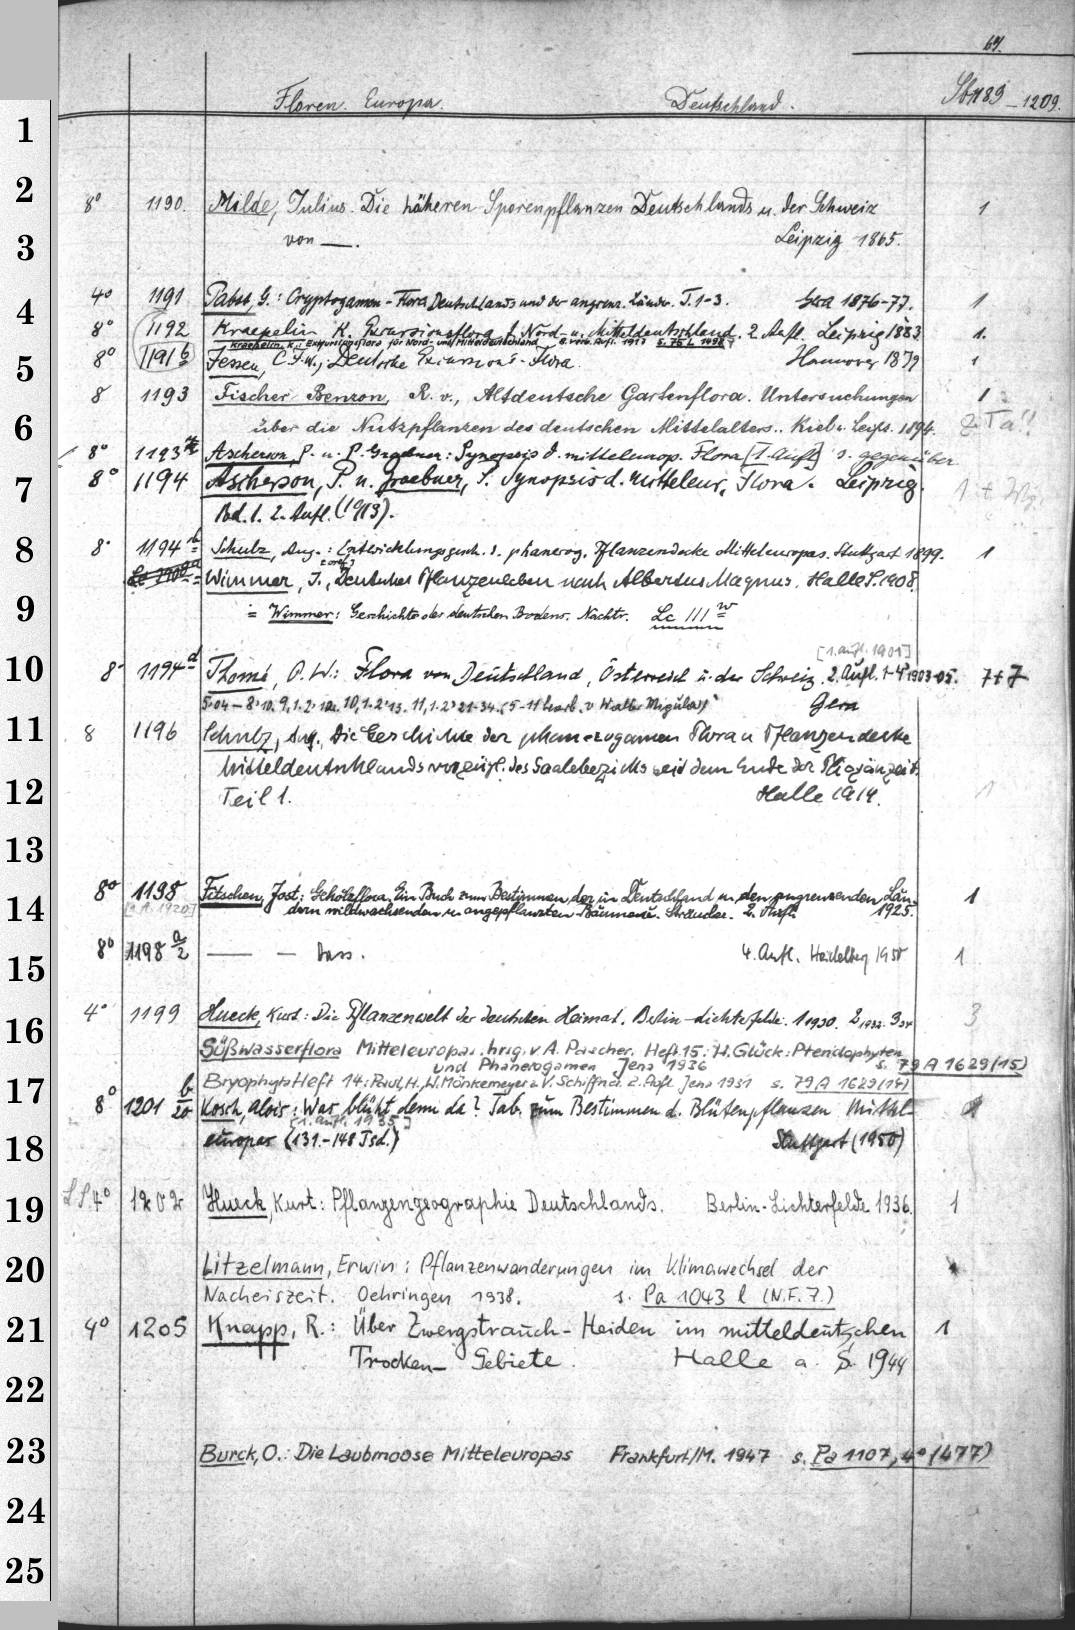 67.
Floren. Europa. Deutschland. Sb 1189-1209.
1
2
3
4
5
6
7
8
9
10
11
12
13
14
15
16
17
18
19
20
21
22
23
24
25
8° 1190. Milde, Julius. Die höheren Sporenpflanzen Deutschlands u. der Schweiz 1
von —. Leipzig 1865.
4° 1191 Pabst, G.: Cryptogamen-Flora Deutschlands und der angrenz. Länder. T.1-3. Gera 1876-77. 1
8° 1192 Kraepelin K. Excursionsflora f. Nord- u. Mitteldeutschland. 2. Aufl. Leipzig 1883 1.
Kraepelin, K.: Exkursionsflora für Nord- und Mitteldeutschland 8. verb. Aufl. 1917 s. 75 L 1498
8° 1191 b Jessen, C.F.W.; Deutsche Excursions-Flora. Hannover 1879 1
8 1193 Fischer Benzon, R. v., Altdeutsche Gartenflora. Untersuchungen 1
über die Nutzpflanzen des deutschen Mittelalters.. Kiel u. Leipz. 1894. z. Ta!!
8° 1193 Ascherson, P. u. P. Graebner: Synopsis d. mitteleurop. Flora [1. Aufl.] s. gegenüber
8° 1194 Ascherson, P. u. Graebner, P. Synopsis d. mitteleur. Flora. Leipzig.
Bd. 1. 2. Aufl. (1913).
8° 1194 b Schulz, Aug.: Entwicklungsgesch. d. phanerog. Pflanzendecke Mitteleuropas. Stuttgart 1899. 1
Wimmer, J., Deutsches Pflanzenleben nach Albertus Magnus. Halle S. 1908.
= Wimmer: Geschichte des deutschen Bodens. Nachtr. Lc 111 w
[1. Aufl. 1901]
8° 1194 d Thomé, O. W.: Flora von Deutschland, Österreich u. der Schweiz. 2. Aufl. 1-4 1903-05. 7+7
Gera
8 1196 Schulz, Aug. Die Geschichte der phanerogamen Flora u Pflanzendecke
Mitteldeutschlands vorzügl. des Saalebezirks seit dem Ende der Pliozänzeit.
Teil 1. Halle 1914. 1
8° 1198 Fitschen, Jost: Gehölzflora. Ein Buch zum Bestimmen der in Deutschland u. den angrenzenden Län- 1
[1. A. 1920] dern wildwachsenden u. angepflanzten Bäume u. Sträucher. 2. Aufl. 1925.
8° 1198 a/2 — — Dass. 4. Aufl. Heidelberg 1950 1
4° 1199 Hueck, Kurt: Die Pflanzenwelt der deutschen Heimat. Berlin-Lichterfelde. 1 1930. 2 1932. 3 3
Süßwasserflora Mitteleuropas. hrsg. v. A. Pascher. Heft 15: H. Glück: Pteridophyten
und Phanerogamen Jena 1936 s. 79 A 1629 (15)
Bryophyta Heft 14: Paul, H., W. Mönkemeyer u. V. Schiffner. 2. Aufl. Jena 1931 s. 79 A 1629 (14)
8° 1201 b/20 Kosch, Alois: Was blüht denn da? Tab. zum Bestimmen d. Blütenpflanzen Mittel- 1
[1. Aufl. 1935]
europas (131.-148 Tsd.) Stuttgart (1950)
LS 4° 1202 Hueck, Kurt: Pflanzengeographie Deutschlands. Berlin-Lichterfelde 1936. 1
Litzelmann, Erwin: Pflanzenwanderungen im Klimawechsel der
Nacheiszeit. Oehringen 1938. s. Pa 1043 l (N.F. 7.)
4° 1205 Knapp, R.: Über Zwergstrauch-Heiden im mitteldeutschen 1
Trocken-Gebiete. Halle a. S. 1944
Burck, O.: Die Laubmoose Mitteleuropas Frankfurt/M. 1947 s. Pa 1107, 4° (477)